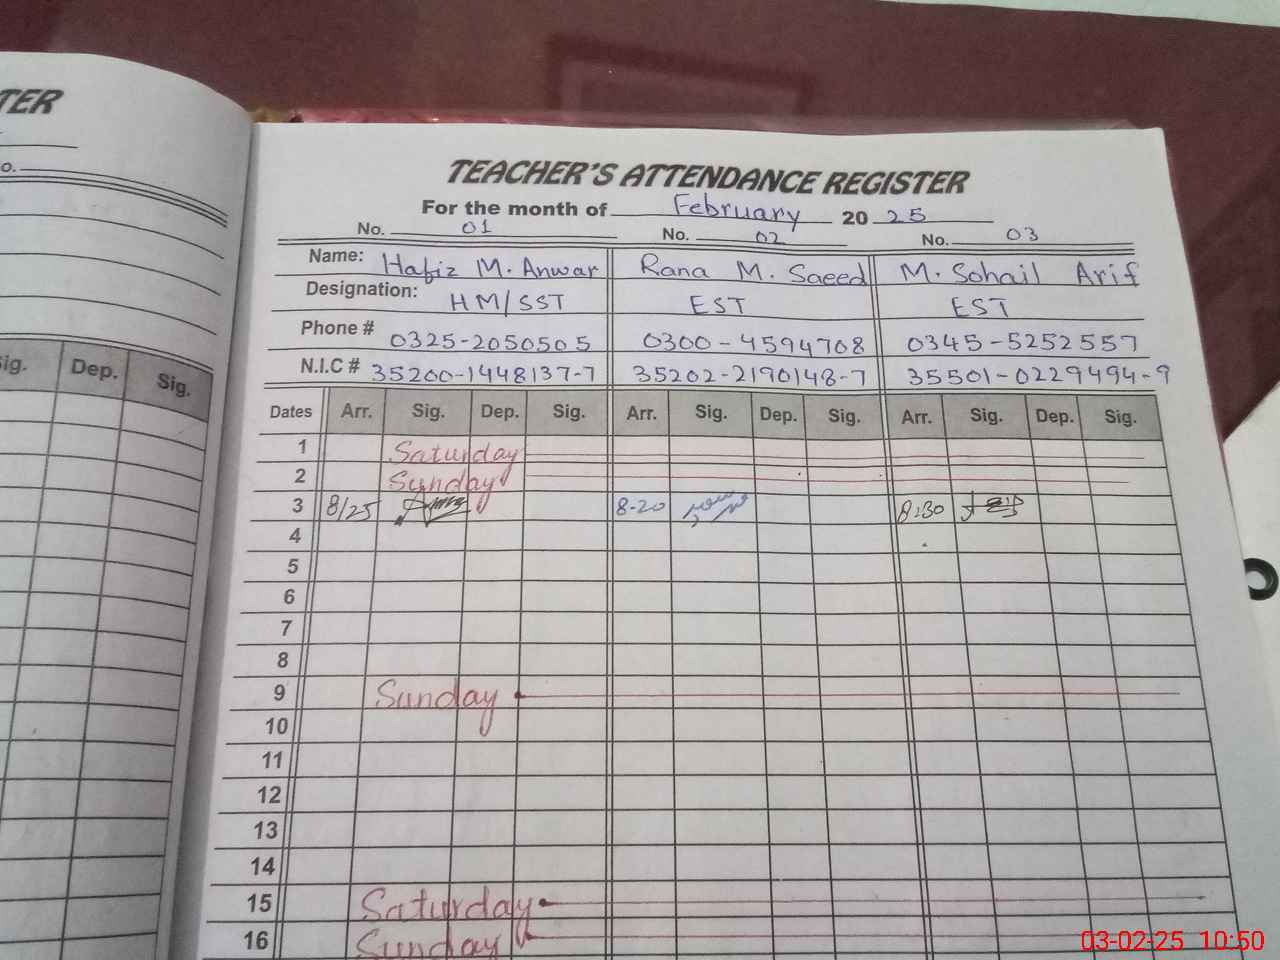 TER
o.
ig. Dep. Sig.
TEACHER'S ATTENDANCE REGISTER
For the month of February 20 25
No. 01 No. 02 No. 03
Name: Hafiz M. Anwar Rana M. Saeed M. Sohail Arif
Designation: HM/SST EST EST
Phone # 0325-2050505 0300-4594708 0345-5252557
N.I.C # 35200-1448137-7 35202-2190148-7 35501-0229494-9
Dates Arr. Sig. Dep. Sig. Arr. Sig. Dep. Sig. Arr. Sig. Dep. Sig.
1 Saturday
2 Sunday
3 8/25 8-20 8:30
4
5
6
7
8
9 Sunday
10
11
12
13
14
15 Saturday
16 Sunday
03-02-25 10:50